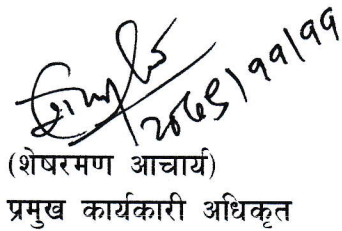 २०७९/११/११
(शेषरमण आचार्य)
प्रमुख कार्यकारी अधिकृत